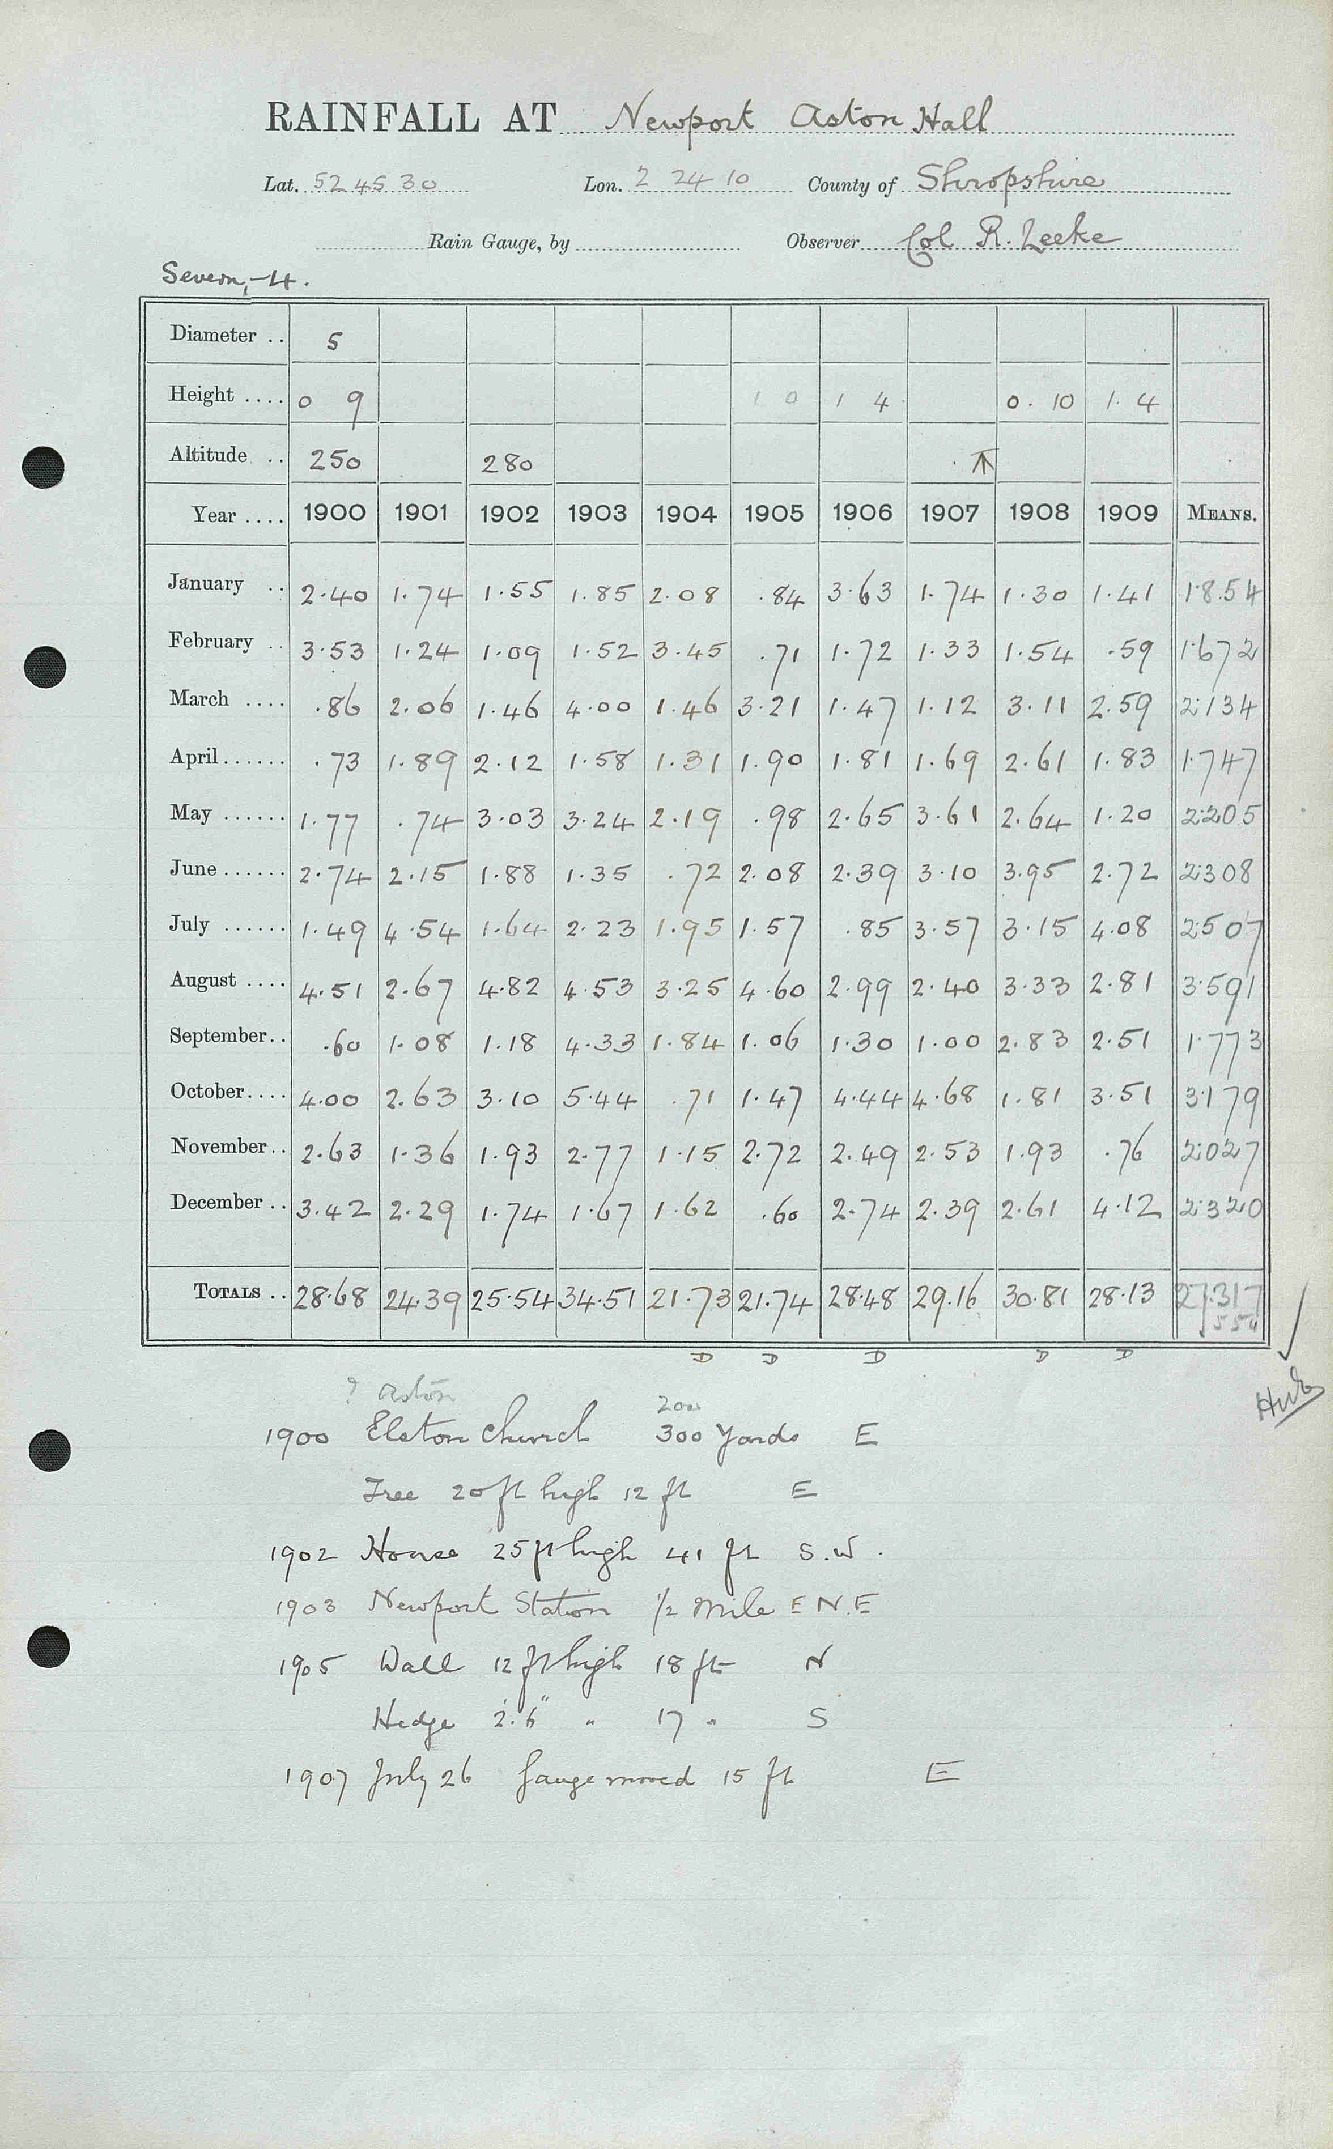 RAINFALL AT Newport Aston Hall
Lat. 52 45 30 Lon. 2 24 10 County of Shropshire
Rain Gauge, by Observer Col R. Leeke
Severn, -4.
Diameter .. 5
Height .... 0 9 1 0 1 4 0. 10 1. 4
Altitude .. 250 280 ↑
Year .... 1900 1901 1902 1903 1904 1905 1906 1907 1908 1909 MEANS.
January .. 2.40 1.74 1.55 1.85 2.08 .84 3.63 1.74 1.30 1.41 1.854
February .. 3.53 1.24 1.09 1.52 3.45 .71 1.72 1.33 1.54 .59 1.672
March .... .86 2.06 1.46 4.00 1.46 3.21 1.47 1.12 3.11 2.59 2.134
April...... .73 1.89 2.12 1.58 1.31 1.90 1.81 1.69 2.61 1.83 1.747
May ...... 1.77 .74 3.03 3.24 2.19 .98 2.65 3.61 2.64 1.20 2.205
June ...... 2.74 2.15 1.88 1.35 .72 2.08 2.39 3.10 3.95 2.72 2.308
July ...... 1.49 4.54 1.64 2.23 1.95 1.57 .85 3.57 3.15 4.08 2.507
August .... 4.51 2.67 4.82 4.53 3.25 4.60 2.99 2.40 3.33 2.81 3.591
September.. .60 1.08 1.18 4.33 1.84 1.06 1.30 1.00 2.83 2.51 1.773
October.... 4.00 2.63 3.10 5.44 .71 1.47 4.44 4.68 1.81 3.51 3.179
November.. 2.63 1.36 1.93 2.77 1.15 2.72 2.49 2.53 1.93 .76 2.027
December .. 3.42 2.29 1.74 1.67 1.62 .60 2.74 2.39 2.61 4.12 2.320
TOTALS .. 28.68 24.39 25.54 34.51 21.73 21.74 28.48 29.16 30.81 28.13 27.317
554
D D D D D
? Aston
200
1900 Elston Church 300 Yards E
Tree 20 ft high 12 ft E
1902 House 25 ft high 41 ft S.W.
1903 Newport Station 1/2 mile E N.E
1905 Wall 12 ft high 18 ft N
Hedge 2'.6" " 17 " S
1907 July 26 Gauge moved 15 ft E